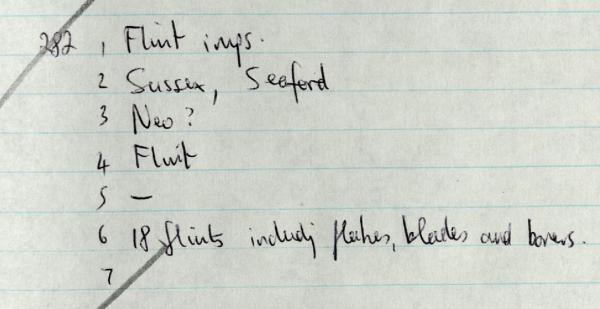 282 1 Flint imps.
2 Sussex, Seaford
3 Neo?
4 Flint
5 —
6 18 flints including flakes, blades and borers.
7